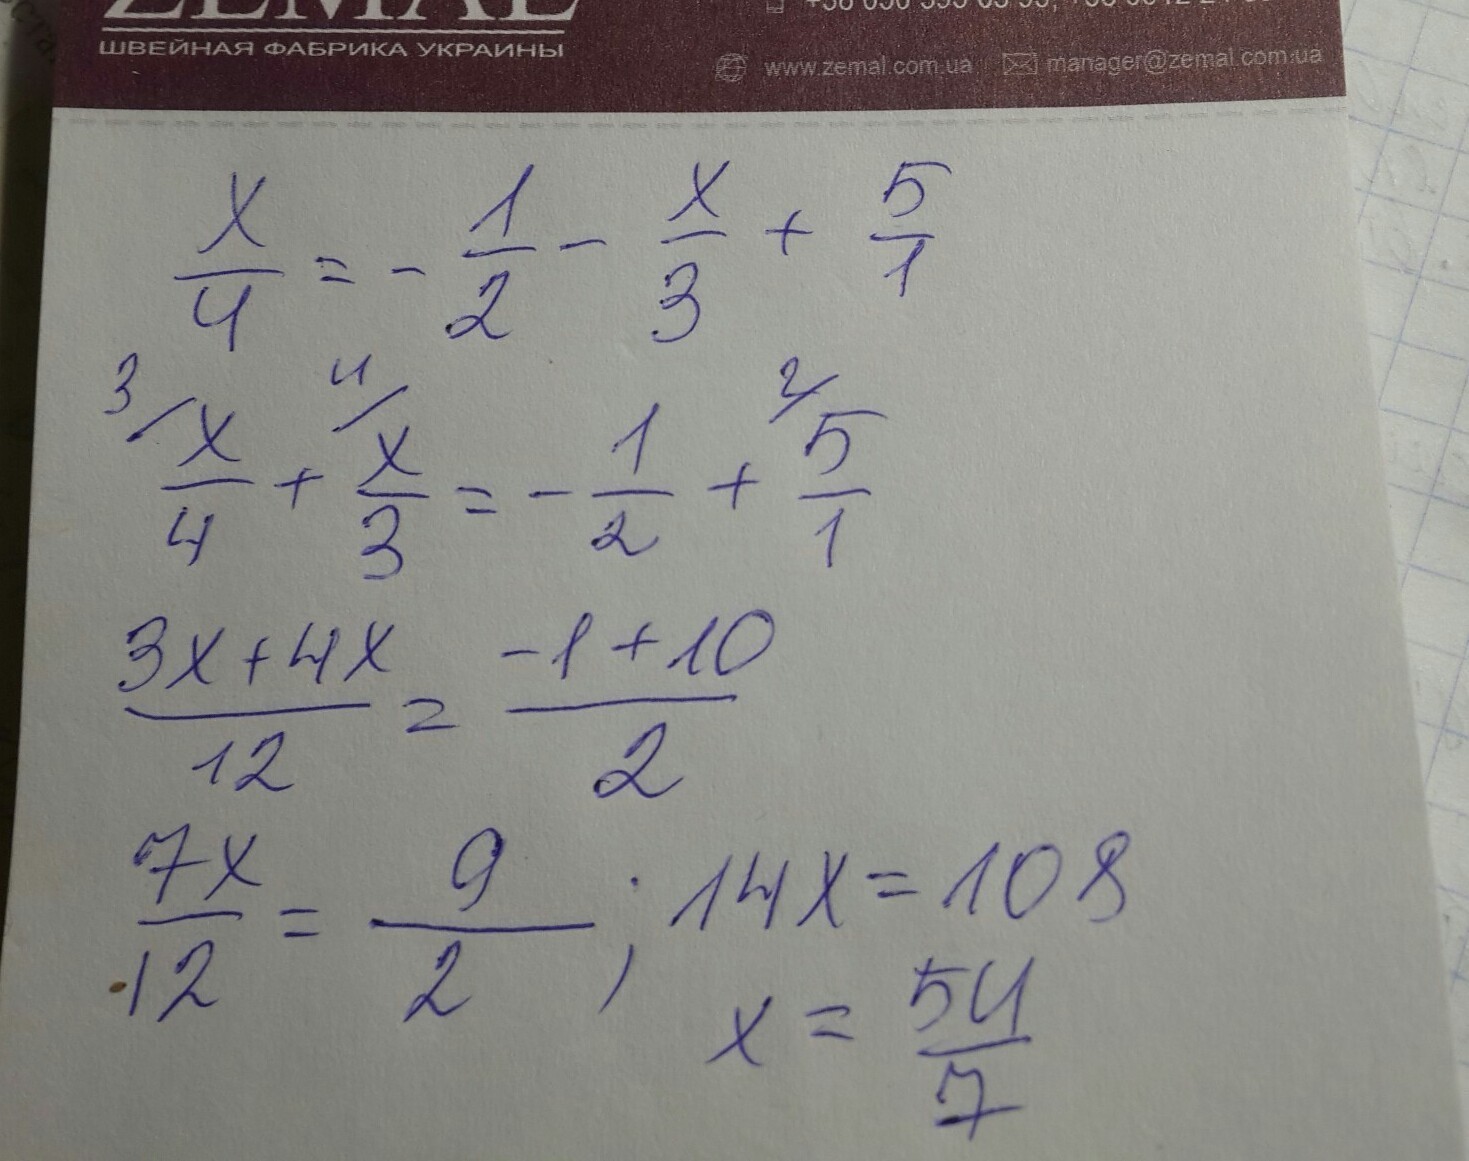 ZEMAL
ШВЕЙНАЯ ФАБРИКА УКРАИНЫ
www.zemal.com.ua manager@zemal.com.ua
x/4 = - 1/2 - x/3 + 5/1
3/ x/4 + 4/ x/3 = - 1/2 + 2/ 5/1
(3x+4x)/12 = (-1+10)/2
7x/12 = 9/2 ; 14x = 108
x = 54/7